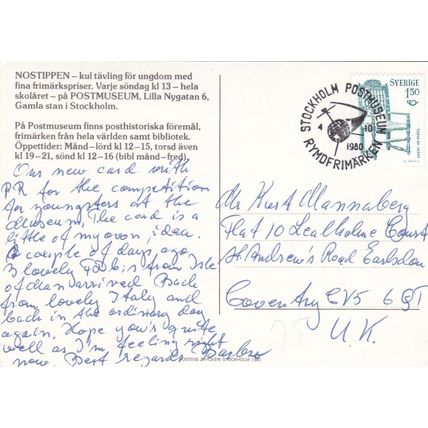 NOSTIPPEN – kul tävling för ungdom med
fina frimärkspriser. Varje söndag kl 13 – hela
skolåret – på POSTMUSEUM, Lilla Nygatan 6,
Gamla stan i Stockholm.
På Postmuseum finns posthistoriska föremål,
frimärken från hela världen samt bibliotek.
Öppettider: Månd–lörd kl 12–15, torsd även
kl 19–21, sönd kl 12–16 (bibl månd–fred).
Our new card with
PR for the competition
for youngsters at the
Museum, The card is a
little of my own idea.
A couple of days ago
a lovely from Isle
of Man arrived. Back
from lovely Italy and
back in the ordinary day
again. Hope you's quite
well as I'm feeling right
now. Best regards
STOCKHOLM POSTMUSEUM
4 10
1980
RYMDFRIMÄRKEN
SVERIGE
1.50
Mr Kurt Mannaberg
Flat 10 Lealholme Court
St. Andrew's Road Earlsdon
Coventry CV5 6 
U.K.
75
STOCKHOLM